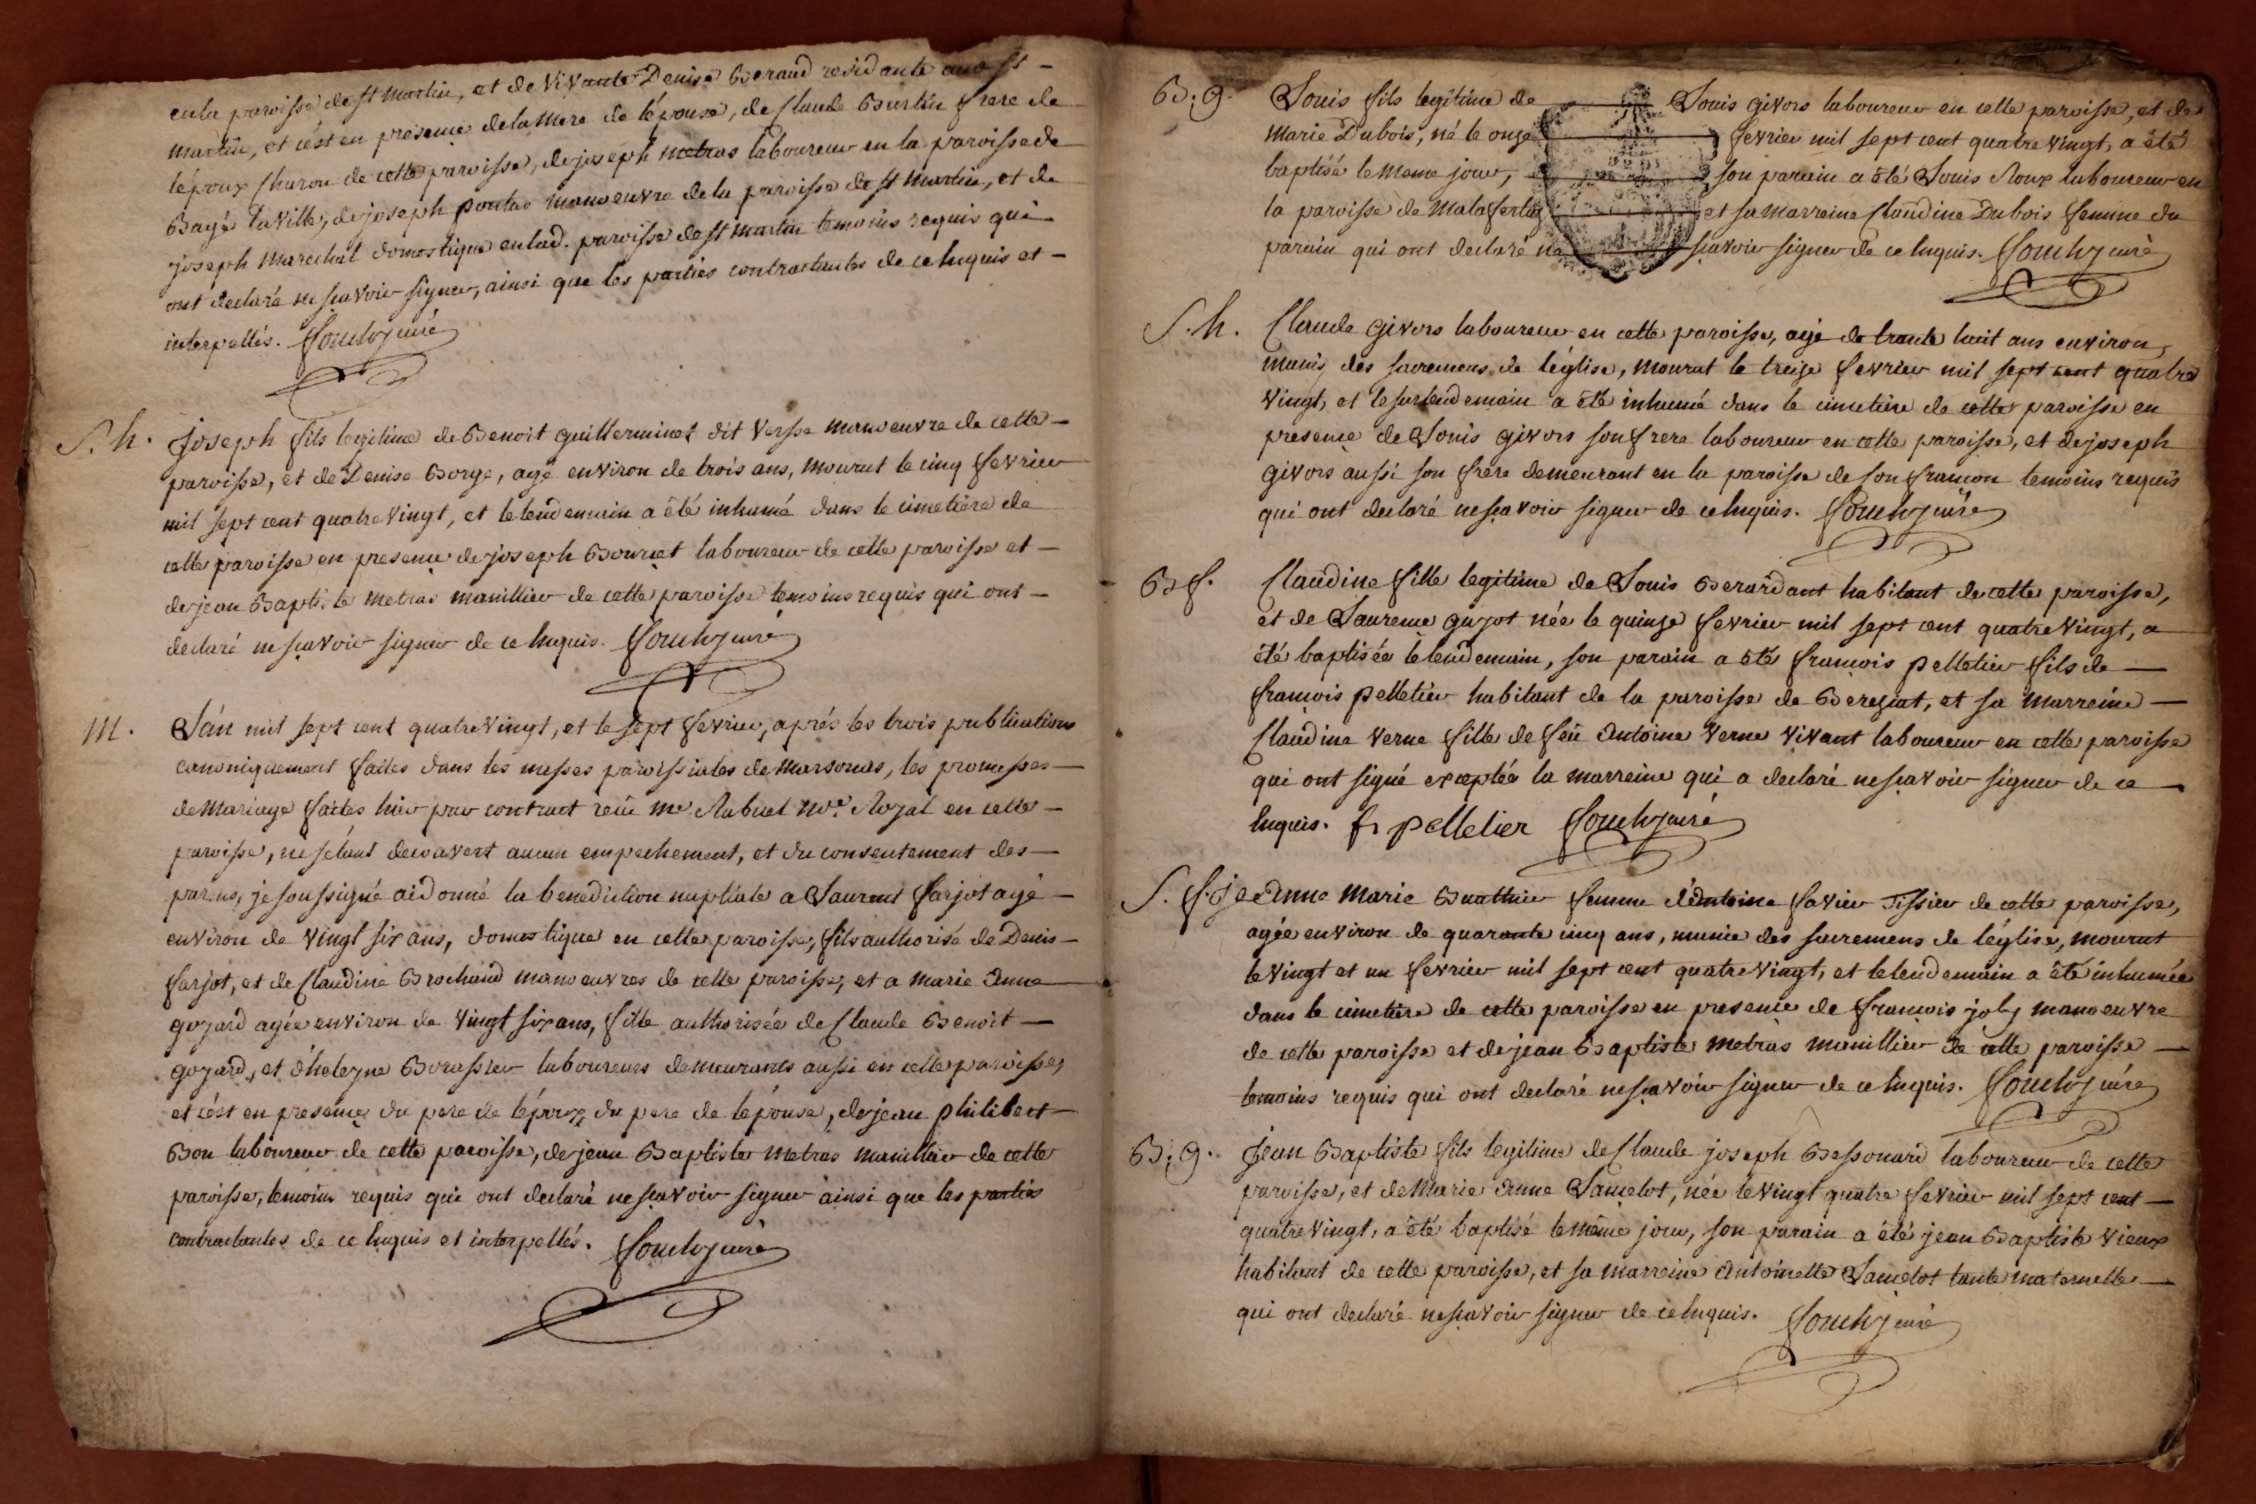 en la paroisse de st martin, et de vivante Denise Beraud residante aud. st —
martin, et c'est en présence de la mere de l'épouse, de Claude Burtin frere de
l'époux Charon de cette paroisse, de joseph metras laboureur en la paroisse de
Bagé la ville, de joseph pontus manoeuvre de la paroisse de st martin, et de
joseph marechal domestique en lad. paroisse de st martin temoins requis qui
ont declaré ne scavoir signer, ainsi que les parties contractantes de ce enquis et —
interpellés. curé
S. h. joseph fils legitime de Benoit guillerminet dit Versse manoeuvre de cette —
paroisse, et de Denise Borge, agé environ de trois ans, mourut le cinq fevrier
mil sept cent quatre vingt, et le lendemain a été inhumé dans le cimetière de
cette paroisse en presence de joseph Bourcet laboureur de cette paroisse et —
de jean Baptiste metras manillier de cette paroisse temoins requis qui ont —
declaré ne scavoir signer de ce enquis. curé
M. L'an mil sept cent quatre vingt, et le sept fevrier, aprés les trois publications
canoniquement faites dans les messes paroissiales de Marsonas, les promesses —
de mariage faites hier par contract reçu me Rabuel Nre. Royal en cette —
paroisse, ne s'etant decouvert aucun empechement, et du consentement des —
parens, je soussigné ai donné la benediction nuptiale a Laurent farjot agé —
environ de vingt six ans, domestique en cette paroisse, fils authorisé de Denis —
farjot, et de Claudine Brochand manoeuvres de cette paroisse, et a marie anne —
goyard agée environ de vingt six ans, fille authorisée de Claude Benoit —
goyard, et d'heleyne Brassier laboureurs demeurants aussi en cette paroisse,
et c'est en presence du pere de l'époux du pere de l'épouse, de jean philibert —
Bon laboureur de cette paroisse, de jean Baptiste metras manillier de cette
paroisse, temoins requis qui ont declaré ne scavoir signer ainsi que les parties
contractantes de ce enquis et interpellés. curé
B. g. Louis fils legitime de Louis givors laboureur en cette paroisse, et de
marie Dubois, né le onze fevrier mil sept cent quatre vingt, a été
baptisé le meme jour, son parain a été Louis Roux laboureur en
la paroisse de Malafretaz et sa marreine Claudine Dubois femme du
parain qui ont declaré ne scavoir signer de ce enquis. curé
S. h. Claude givors laboureur en cette paroisse, agé de trante huit ans environ,
munis des sacremens de l'église, mourut le treize fevrier mil sept cent quatre
vingt, et le surlendemain a été inhumé dans le cimetiere de cette paroisse en
presence de Louis givors son frere laboureur en cette paroisse, et de joseph
givors aussi son frere demeurant en la paroisse de confrancon temoins requis
qui ont declaré ne scavoir signer de ce enquis. curé
B f. Claudine fille legitime de Louis Berardant habitant de cette paroisse,
et de Laurence guyot née le quinze fevrier mil sept cent quatre vingt, a
été baptisée le lendemain, son parain a été françois pelletier fils de —
françois pelletier habitant de la paroisse de Bereziat, et sa marreine —
Claudine verne fille de feû antoine verne vivant laboureur en cette paroisse
qui ont signé exceptée la marreine qui a declaré ne scavoir signer de ce
enquis. fr pelletier curé
S. f. anne marie Buathier femme d'antoine favier Tissier de cette paroisse,
agée environ de quarante cinq ans, munie des sacremens de l'église, mourut
le vingt et un fevrier mil sept cent quatre vingt, et le lendemain a été inhumée
dans le cimetiere de cette paroisse en presence de françois joly manoeuvre
de cette paroisse et de jean Baptiste metras manillier de cette paroisse —
temoins requis qui ont declaré ne scavoir signer de ce enquis. curé
B. g. jean Baptiste fils legitime de Claude joseph Bessonard laboureur de cette
paroisse, et de Marie anne Lamelot, née le vingt quatre fevrier mil sept cent —
quatre vingt, a été baptisé le même jour, son parain a été jean Baptiste vieux
habitant de cette paroisse, et sa marreine antoinette Lamelot tante maternelle —
qui ont declaré ne scavoir signer de ce enquis. curé